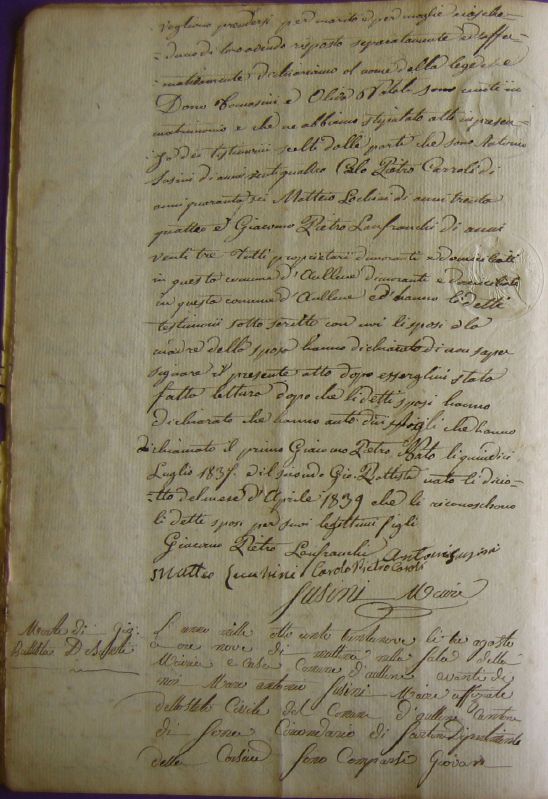 vogliono prendersi per marito e per moglie ciasche-
duno di loro avendo risposto separatamente ed affer-
mativamente dichiariamo al nome della legge che
Dono Tomasini e Oliva sono uniti in
matrimonio e che ne abbiamo stipulato atto in presen-
za dei testimonii scelti dalle parti che sono Antonio
Susini di anni venti quattro Carlo Pietro Carroli di
anni quaranta sei Matteo Lochini di anni trenta
quattro e Giacomo Pietro Lanfranchi di anni
venti tre tutti proprietari dimoranti e domiciliati
in questo comune d'Aullene dimoranti e domiciliati
in questo comune d'Aullene ed hanno li detti
testimonii sotto scritto con noi li sposi e la
madre dello sposo hanno dichiarato di non saper
segnare il presente atto dopo esserglini stato
fatto lettura dopo che li detti sposi hanno
dichiarato che hanno auti dui figli che hanno
dichiamato il primo Giacomo Pietro Nato li quindici
Luglio 183 . e il secondo Gio Battista nato li dicio-
tto del mese d'Aprile 1839 che li riconoschono
li detti sposi per suoi legittimi figli
Giacomo Pietro Lanfranchi Antonio Susini
Matteo Carlo Pietro Caroli
Susini Maire
Morte di Gio:
Battista D
L'anno mille otto cento trentanove li tre agosto
a ore nove di mattina nella sala della
Mairie e casa Comune d'aullene avanti di
noi Maire antonio Susini Maire uffiziale
dello stato Civile del Comune d'aullene Cantone
di Serra Circondario di Sartene Dipartimento
della Corsica sono Comparsi Giovan